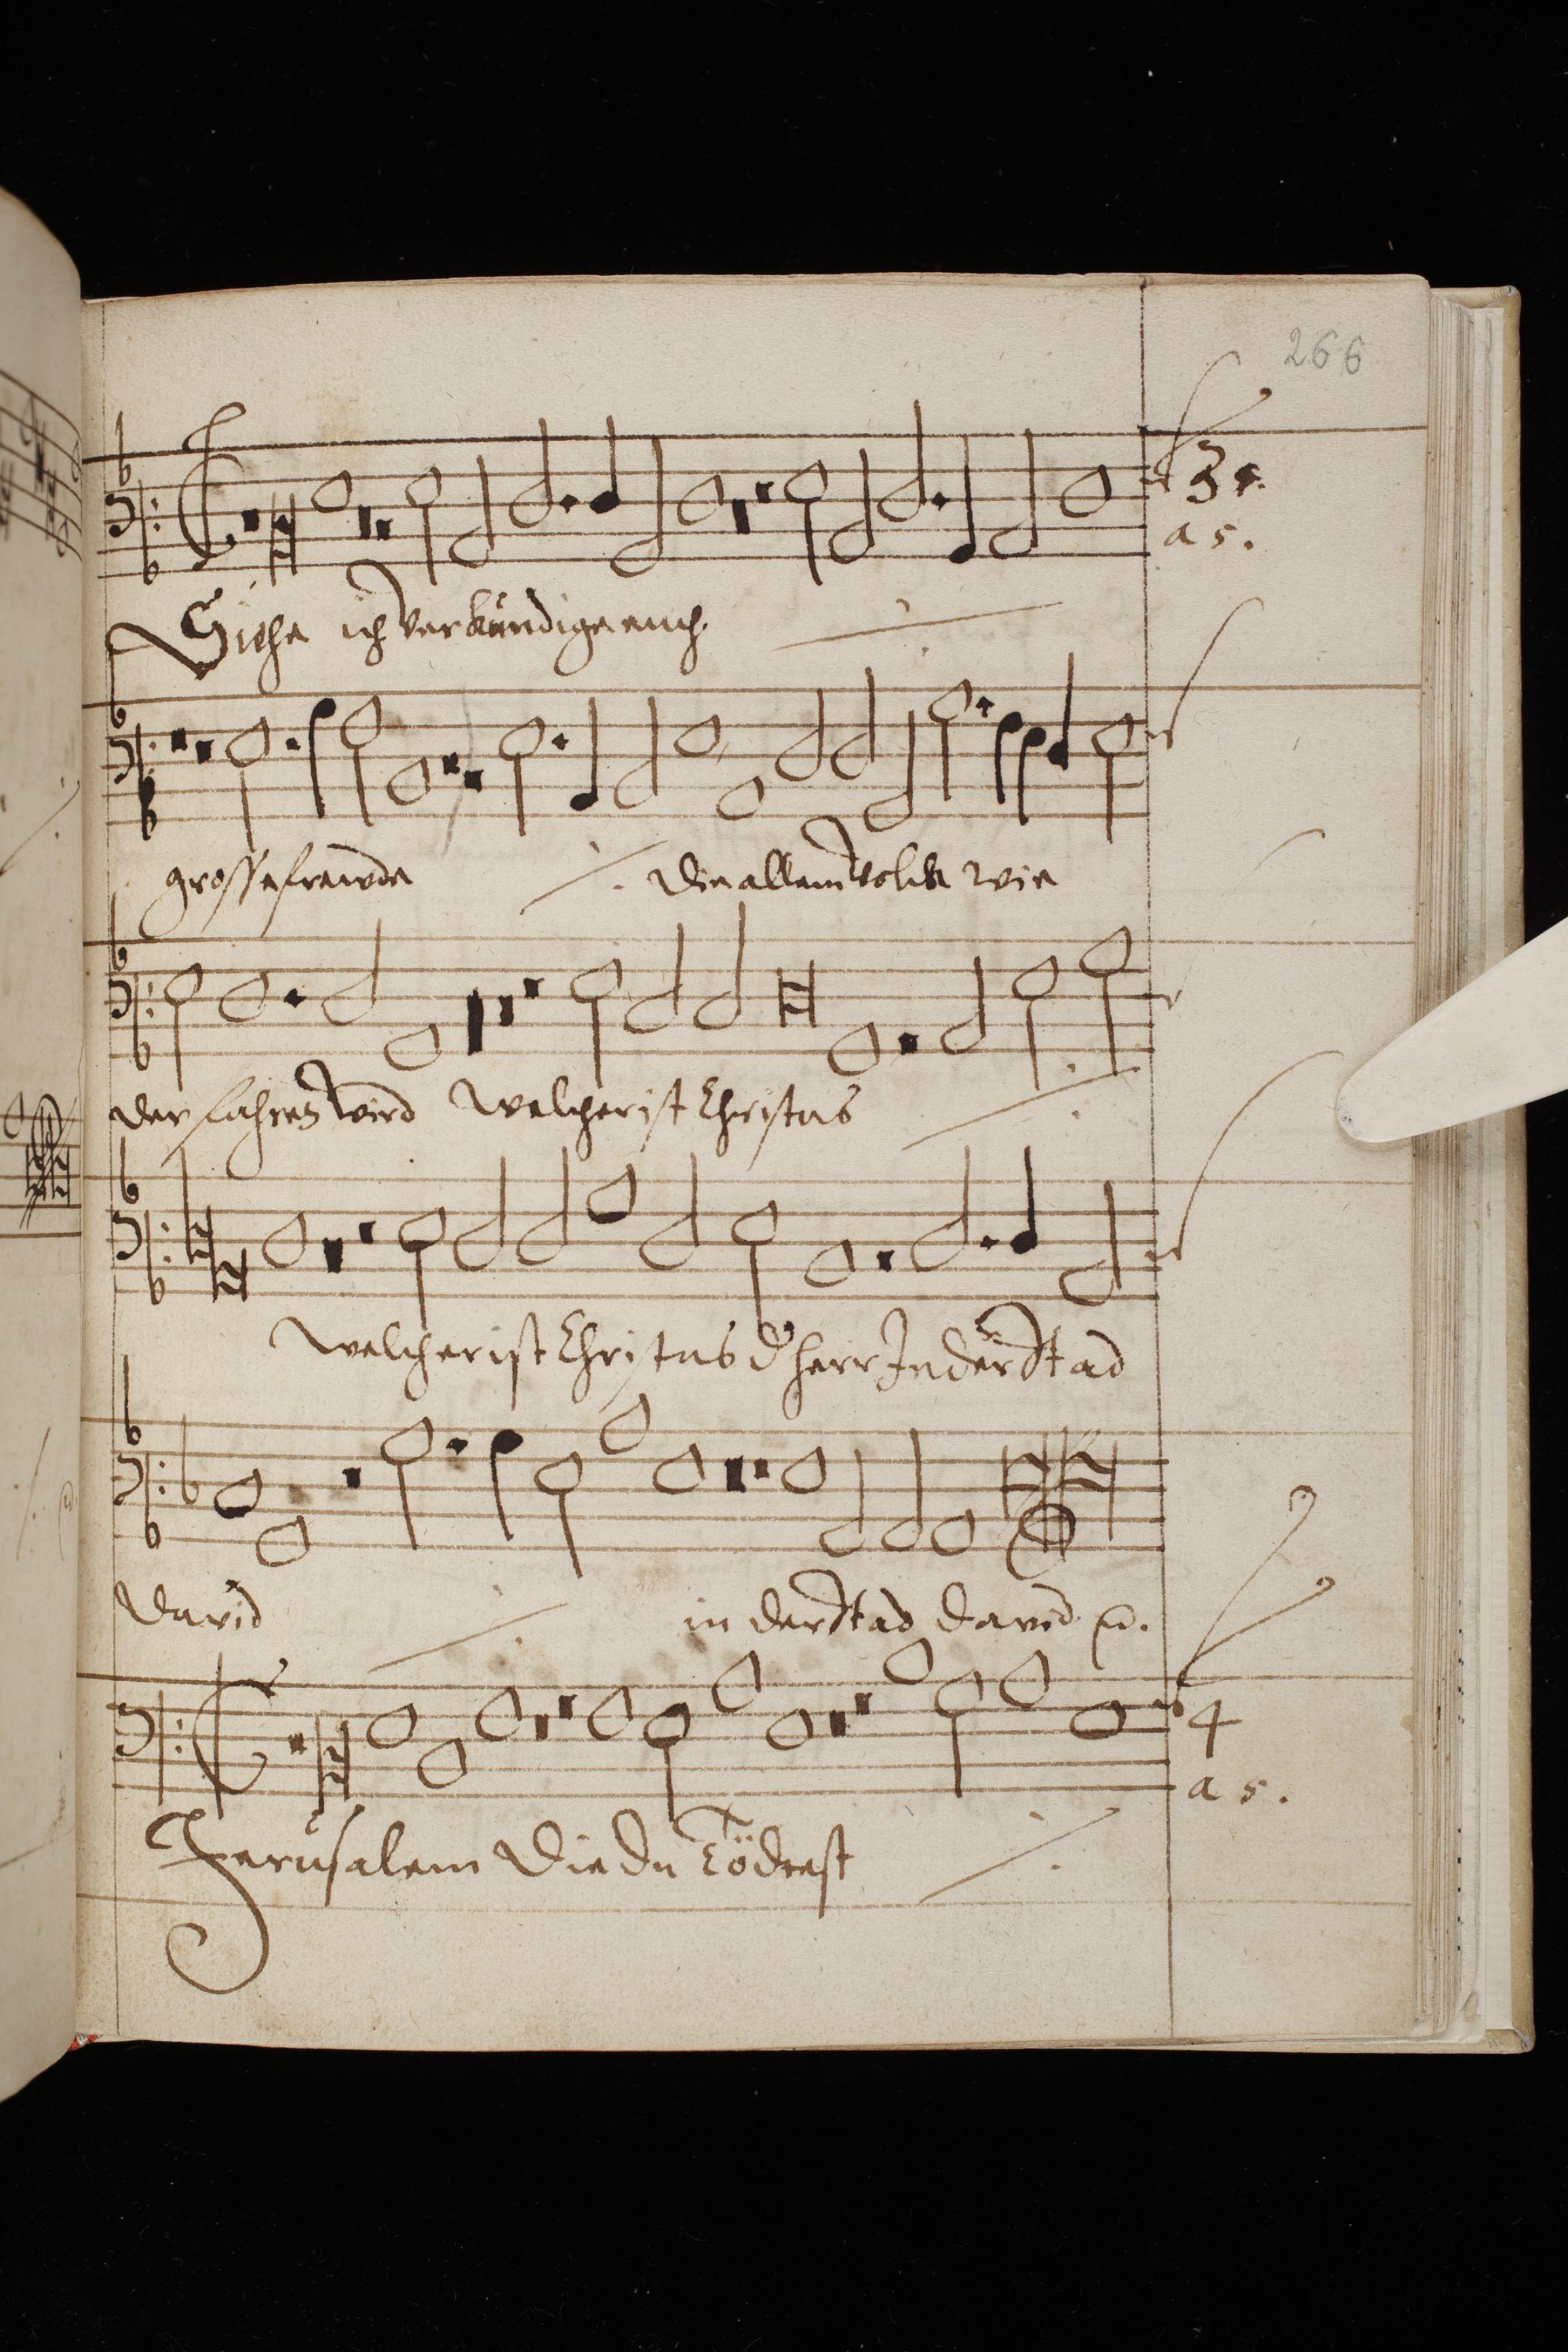 266
3
a 5.
Siehe ich verkündige euch
grosse frewde ·/. die allem volck wie
der fahren wird welcher ist Christus ·/.
welcher ist Christus d' herr In der Stad
David ·/. in der Stad David
4
a 5.
Jerusalem die du tödtest ·/.